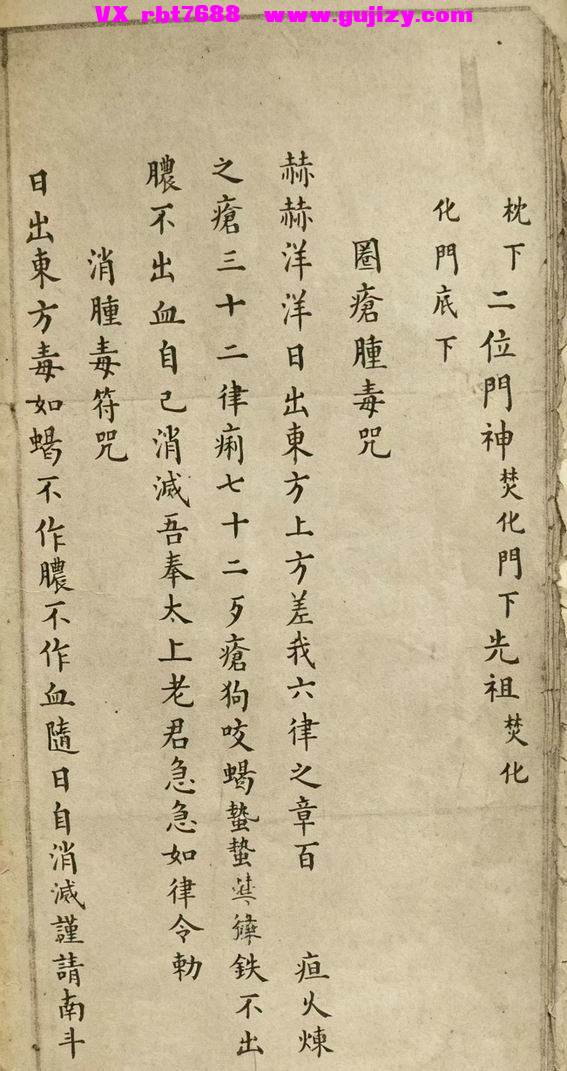 VX rbt7688 www.gujizy.com
枕下二位門神焚化門下先祖焚化
化門底下
圈瘡腫毒咒
赫赫洋洋日出東方上方差我六律之章百 疸火煉
之瘡三十二律痢七十二歹瘡狗咬蝎蟄蟄 鉄不出
膿不出血自己消滅吾奉太上老君急急如律令勅
消腫毒符咒
日出東方毒如蝎不作膿不作血隨日自消滅謹請南斗